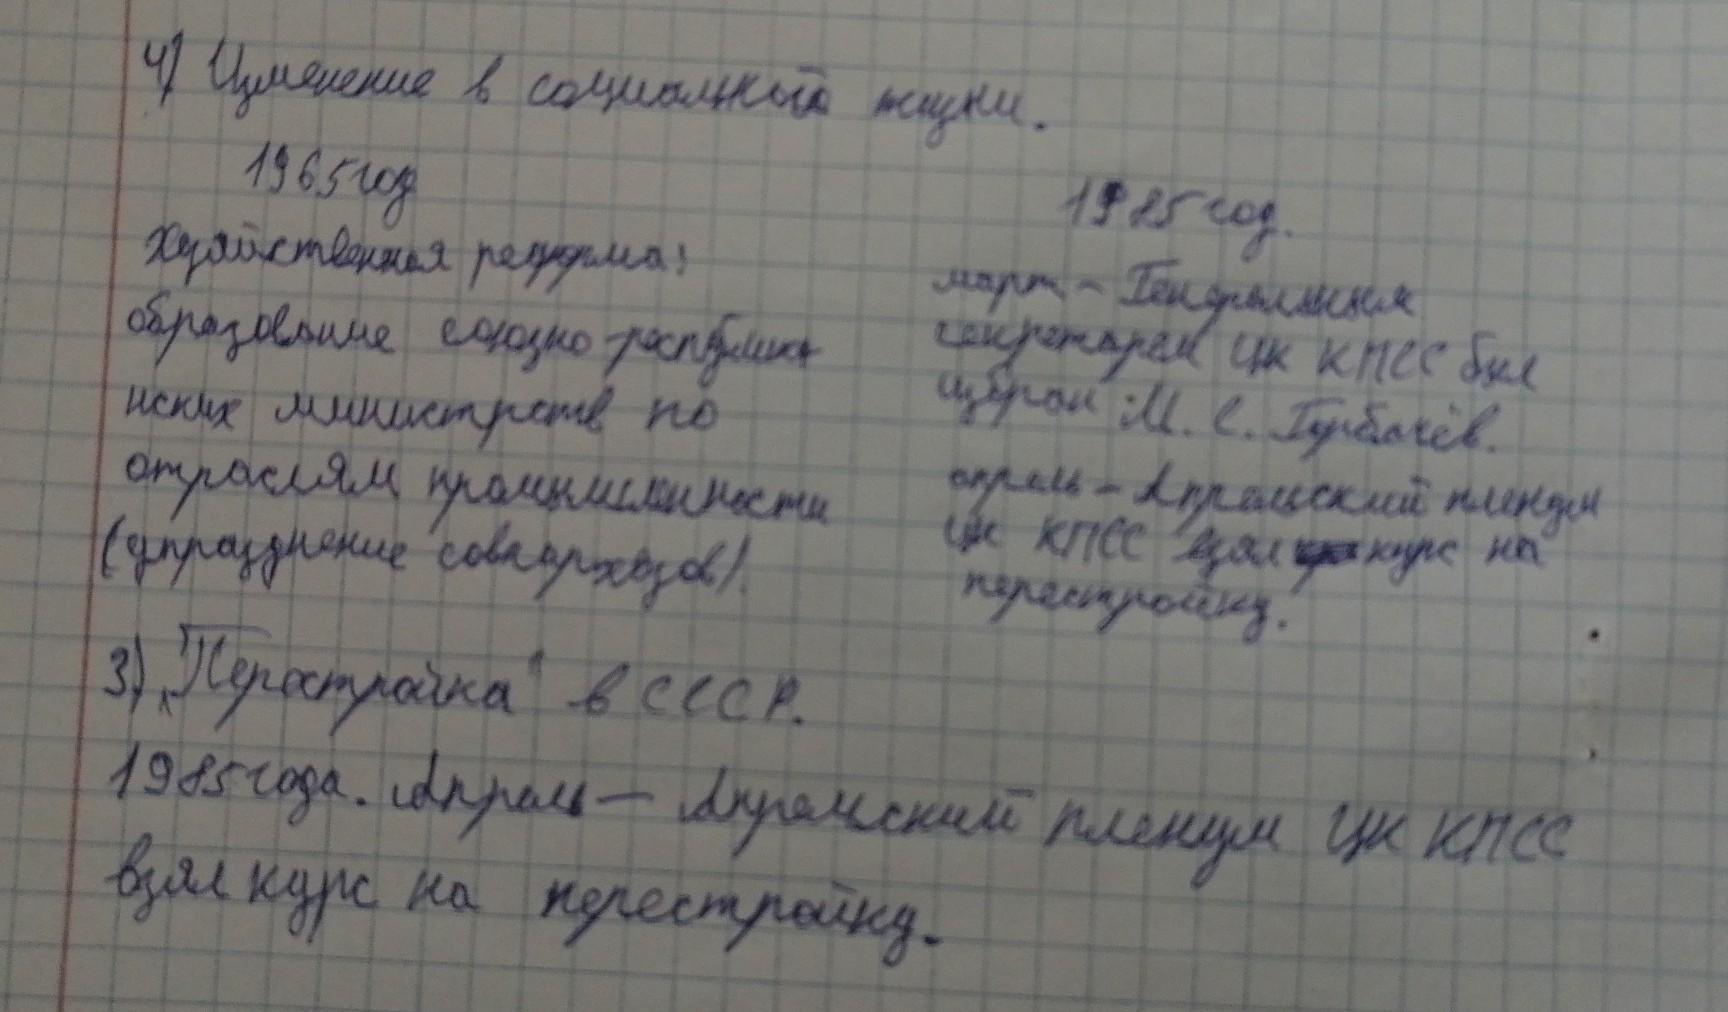 4) Изменение в социальной жизни.
1965 год
Хозяйственная реформа:
образование союзно-республика
нских министерств по
отраслям промышленности
(упразднение совнархозов).
1985 год.
март - Генеральным
секретарем ЦК КПСС был
избран М. С. Горбачёв.
апрель - Апрельский пленум
ЦК КПСС взял курс на
перестройку.
3) "Перестройка" в СССР.
1985 года. Апрель - Апрельский пленум ЦК КПСС
взял курс на перестройку.